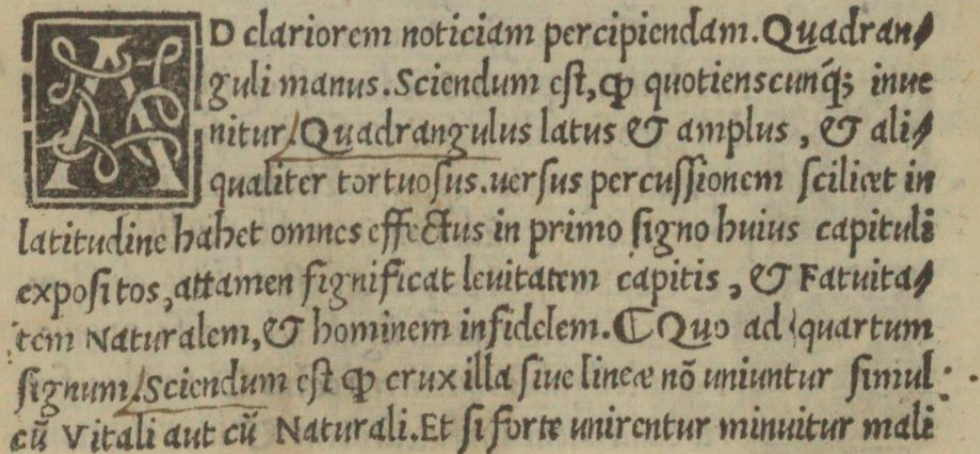 AD clariorem noticiam percipiendam. Quadran⸗
guli manus. Sciendum est, ꝙ quotienscunq́ꝫ inue
nitur/ Quadrangulus latus & amplus, & ali⸗
qualiter tortuosus. uersus percussionem scilicet in
latitudine habet omnes effectus in primo signo huius capituli
expositos, attamen significat leuitatem capitis, & Fatuita⸗
tem Naturalem, & hominem infidelem. ⸿ Quo ad quartum
signum/ Sciendum est ꝙ crux illa siue lineæ nõ uniuntur simul
cũ Vitali aut cũ Naturali. Et si forte unirentur minuitur mali